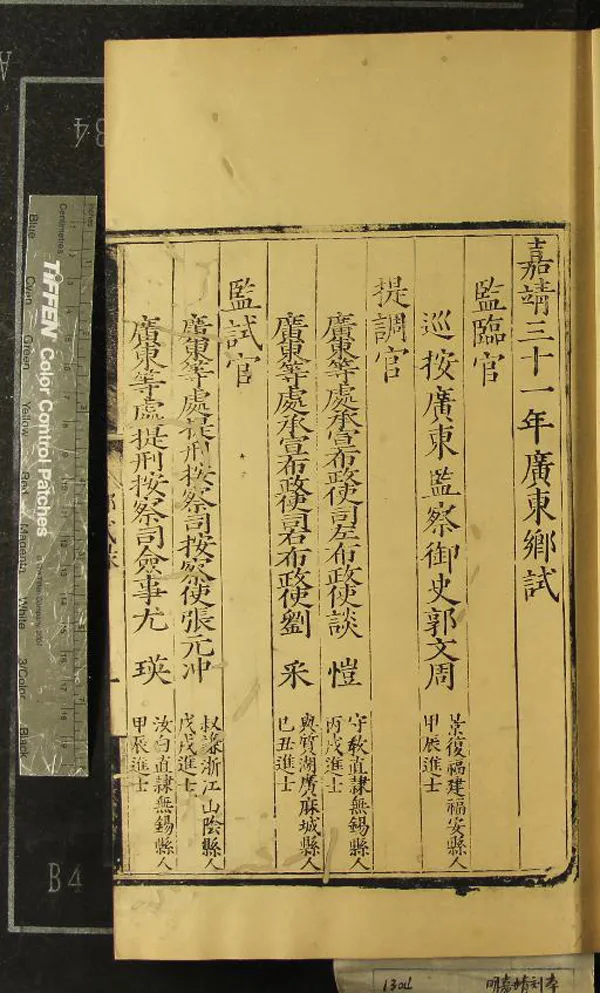 嘉靖三十一年廣東鄉試
監臨官
巡按廣東監察御史郭文周
景復福建福安縣人
甲辰進士
提調官
廣東等處承宣布政使司左布政使談 愷
守敎直隷無錫縣人
丙戌進士
廣東等處承宣布政使司右布政使劉 采
湖廣麻城縣人
己丑進士
監試官
廣東等處提刑按察司按察使張元冲
叔謙浙江山陰縣人
戊戌進士
廣東等處提刑按察司僉事尤 瑛
汝白直隷無錫縣人
甲辰進士
鄉試録
B4
B4
Inches
Centimetres
TIFFEN Color Control Patches
Blue
Cyan
Green
Yellow
Red
Magenta
White
3/Color
Black
明嘉靖刻本